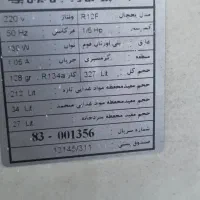 مدل یخچال R12F ولتاژ 220 V
1/6 Hp فرکانس 50 Hz
عایق پلی اورتان فوم توان 130W
منطقه گرمسیری جریان
حجم کل 327 Lit R134a 128 gr
حجم مفید محفظه مواد غذایی تازه 212 Lit
حجم مفید محفظه مواد غذایی منجمد 34 Lit
حجم مفید محفظه سردخانه 27 Lit
شماره سریال 83 - 001356
صندوق پستی 13145/311